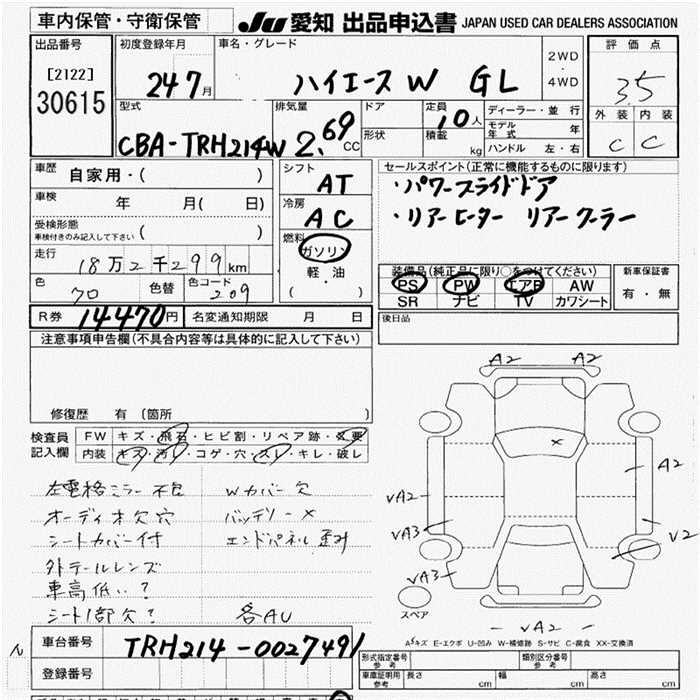 車内保管・守衛保管
JU 愛知 出品申込書 JAPAN USED CAR DEALERS ASSOCIATION
出品番号
[2122]
30615
初度登録年月
24 7月
車名・グレード
ハイエース W GL
2WD
・
4WD
評価点
3.5
外装 内装
C C
型式
CBA-TRH214W
排気量
2.69 CC
ドア
形状
定員
10人
積載
kg
ディーラー・並行
モデル年式 年
ハンドル 左・右
車歴
自家用・( )
車検
年 月( 日)
受検形態
車検付きのみ記入して下さい ( )
走行
18万2千299km
色
70
色替
色コード
209
シフト
AT
冷房
AC
燃料
ガソリン
軽・油
( )
セールスポイント(正常に機能するものに限ります)
・パワースライドドア
・リアヒーター リアクーラー
装備品(純正品に限り○をつけてください)
PS PW エアB AW
SR ナビ TV カワシート
新車保証書
有・無
R券 14470円
名変通知期限 月 日
後日品
注意事項申告欄(不具合内容等は具体的に記入して下さい)
修復歴 有 (箇所 )
検査員
記入欄
FW キズ・飛石・ヒビ割・リペア跡・X要
内装 キズ・汚レ・コゲ・穴・スレ・キレ・破レ
左電格ミラー不良 Wカバー欠
オーディオ欠穴 バッテリーX
シートカバー付 エンドパネル歪み
外テールレンズ
車高低い?
シート1部欠? 各AU
A2 A2
X
A2
VA2
VA3
V2
VA3
スペア
VA2
A-キズ E-エクボ U-凹み W-補修跡 S-サビ C-腐食 XX-交換済
車台番号
TRH214-0027491
登録番号
形式指定番号
参考
類別区分番号
参考
車庫証明用
参考
長さ cm
幅 cm
高さ cm